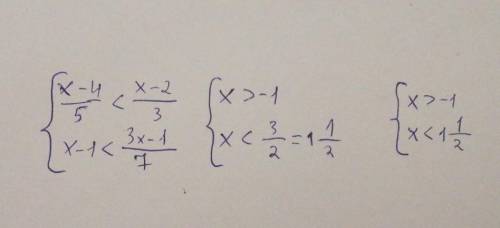 { (x-4)/5 < (x-2)/3
x-1 < (3x-1)/7
{ x > -1
x < 3/2 = 1 1/2
{ x > -1
x < 1 1/2